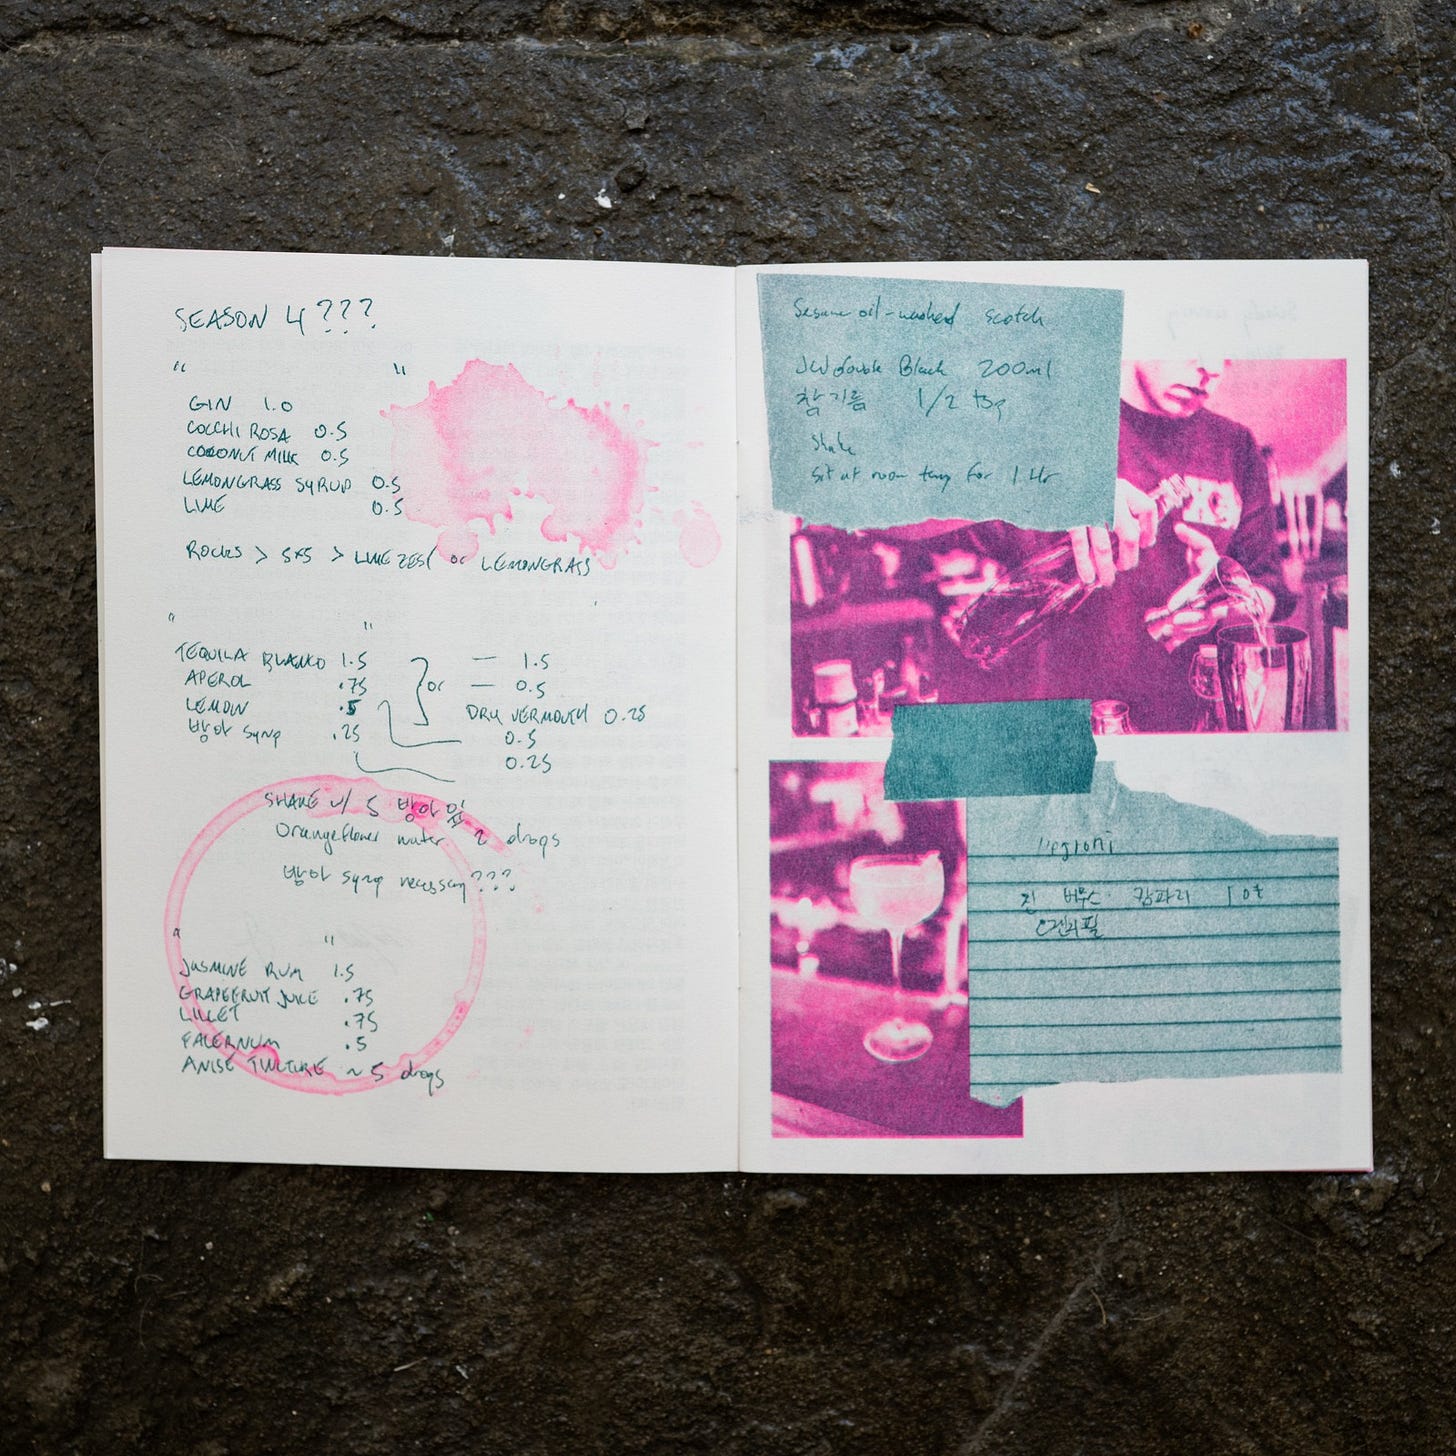 SEASON 4 ???
" "
GIN 1.0
COCCHI ROSA 0.5
COCONUT MILK 0.5
LEMONGRASS SYRUP 0.5
LIME 0.5
ROCKS > 5x5 > LIME ZEST or LEMONGRASS
" "
TEQUILA BLANCO 1.5
APEROL .75
LEMON .5
방아 syrup .25
or
— 1.5
— 0.5
DRY VERMOUTH 0.25
0.5
0.25
SHAKE w/ 5 방아잎
Orangeflower water 2 drops
방아 syrup necessary ???
" "
JASMINE RUM 1.5
GRAPEFRUIT JUICE .75
LILLET .75
FALERNUM .5
ANISE TINCTURE ~ 5 drops
Sesame oil-washed scotch
JW double Black 200ml
참기름 1/2 tsp
Shake
Sit at room temp for 1 Hr
진 버무스 캄파리 1 oz
오렌지필